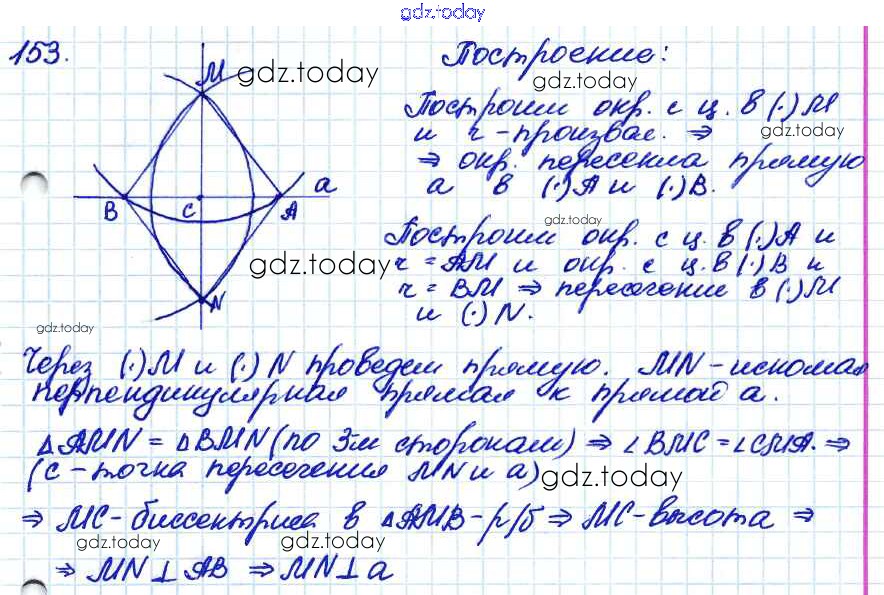 gdz.today
153.
M
a
B
C
A
N
gdz.today
gdz.today
gdz.today
Построение:
gdz.today
Построим окр. с ц. в (·) M
и r - произвол. ⇒
gdz.today
⇒ окр. пересекла прямую
a в (·) A и (·) B.
gdz.today
Построим окр. с ц. в (·) A и
r = AM и окр. с ц. в (·) B и
r = BM ⇒ пересечение в (·) M
и (·) N.
Через (·) M и (·) N проведем прямую. MN - искомая
перпендикулярная прямая к прямой a.
△AMN = △BMN (по 3-м сторонам) ⇒ ∠BMC = ∠CMA. ⇒
(C - точка пересечения MN и a)
gdz.today
⇒ MC - биссектриса в △AMB - р/б ⇒ MC - высота ⇒
gdz.today
gdz.today
⇒ MN ⊥ AB ⇒ MN ⊥ a